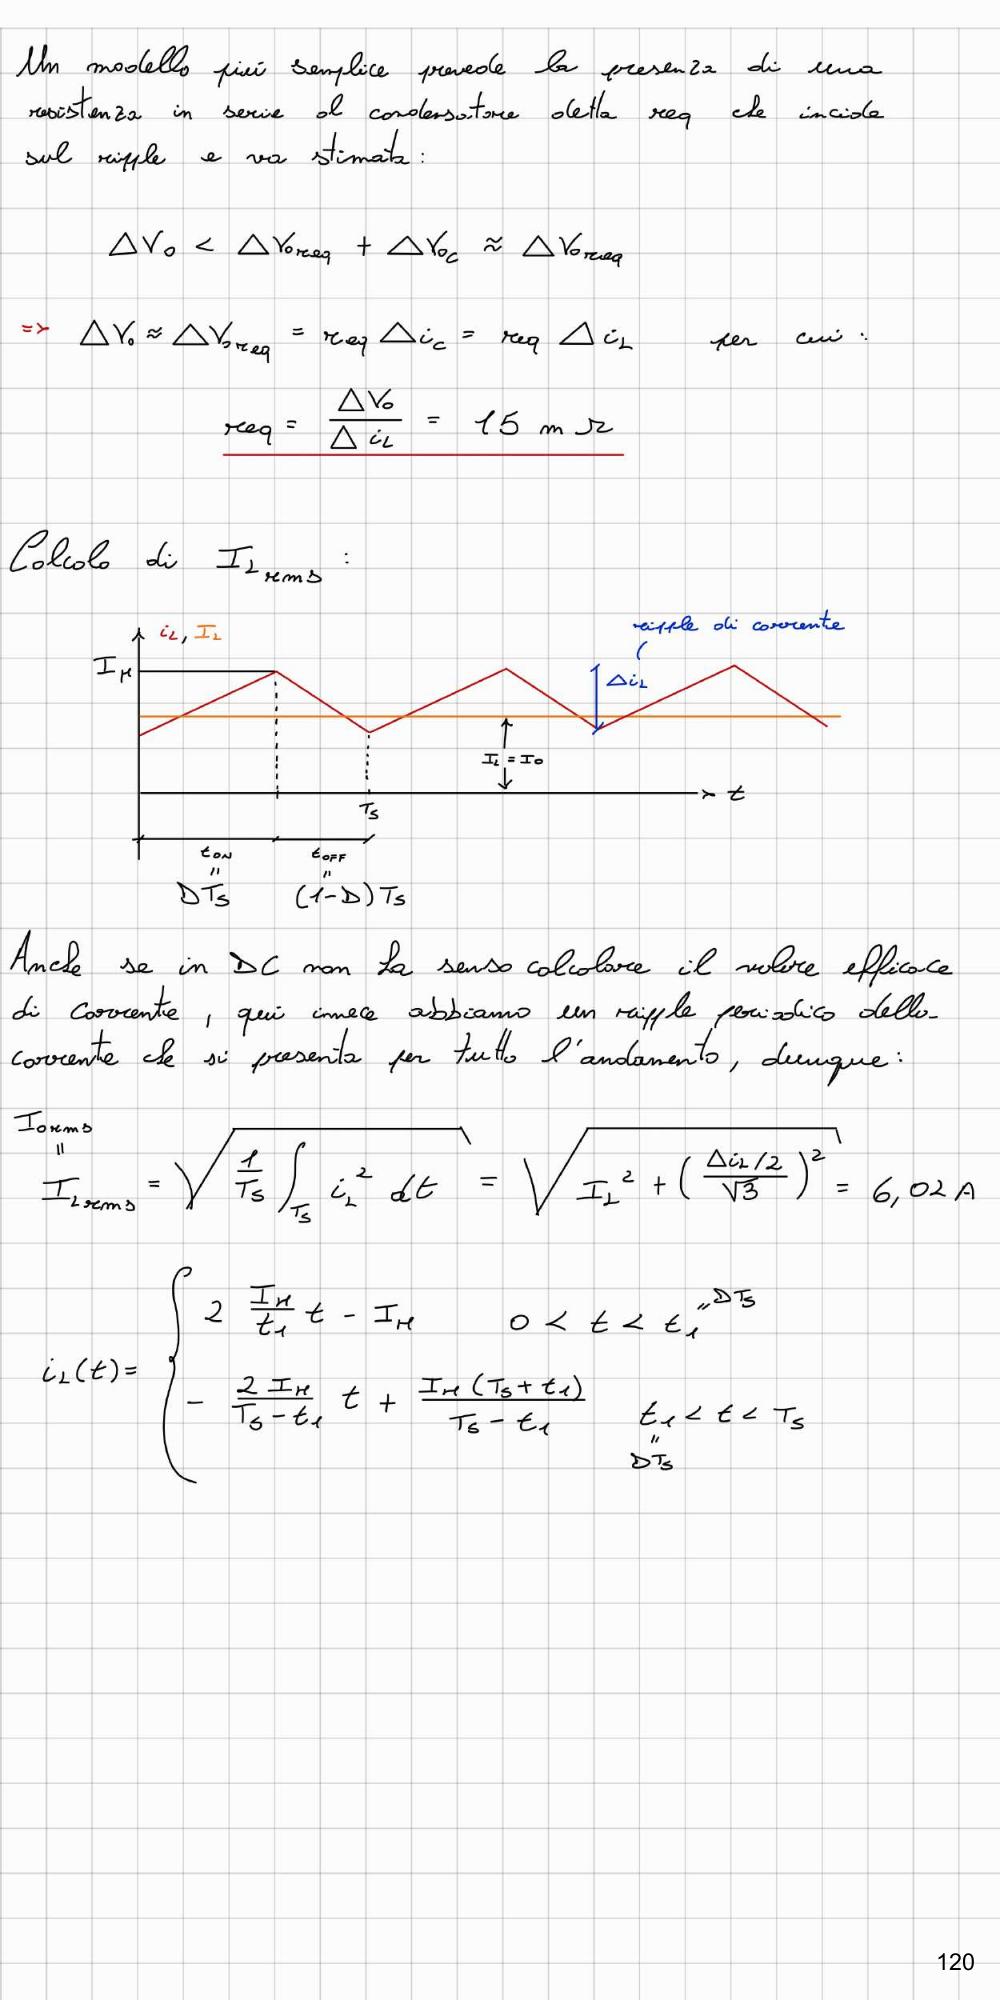 Un modello più semplice prevede la presenza di una
resistenza in serie al condensatore detta req che incide
sul ripple e va stimata:
ΔVo < ΔVoreq + ΔVoc ≈ ΔVoreq
=> ΔVo ≈ ΔVoreq = req Δic = req ΔiL per cui:
req = ΔVo / ΔiL = 15 mΩ
Calcolo di ILrms:
iL, IL
ripple di corrente
IM
ΔiL
IL = Io
t
Ts
tON tOFF
" "
DTs (1-D)Ts
Anche se in DC non ha senso calcolare il valore efficace
di corrente, qui invece abbiamo un ripple periodico della
corrente che si presenta per tutto l'andamento, dunque:
Iorms
"
ILrms = √(1/Ts ∫Ts iL² dt) = √(IL² + ((ΔiL/2)/√3)²) = 6,02 A
iL(t) = { 2 IM/t1 t - IM 0 < t < t1 " DTs
- 2 IM/(Ts - t1) t + IM (Ts + t1)/(Ts - t1) t1 < t < Ts
"
DTs
120